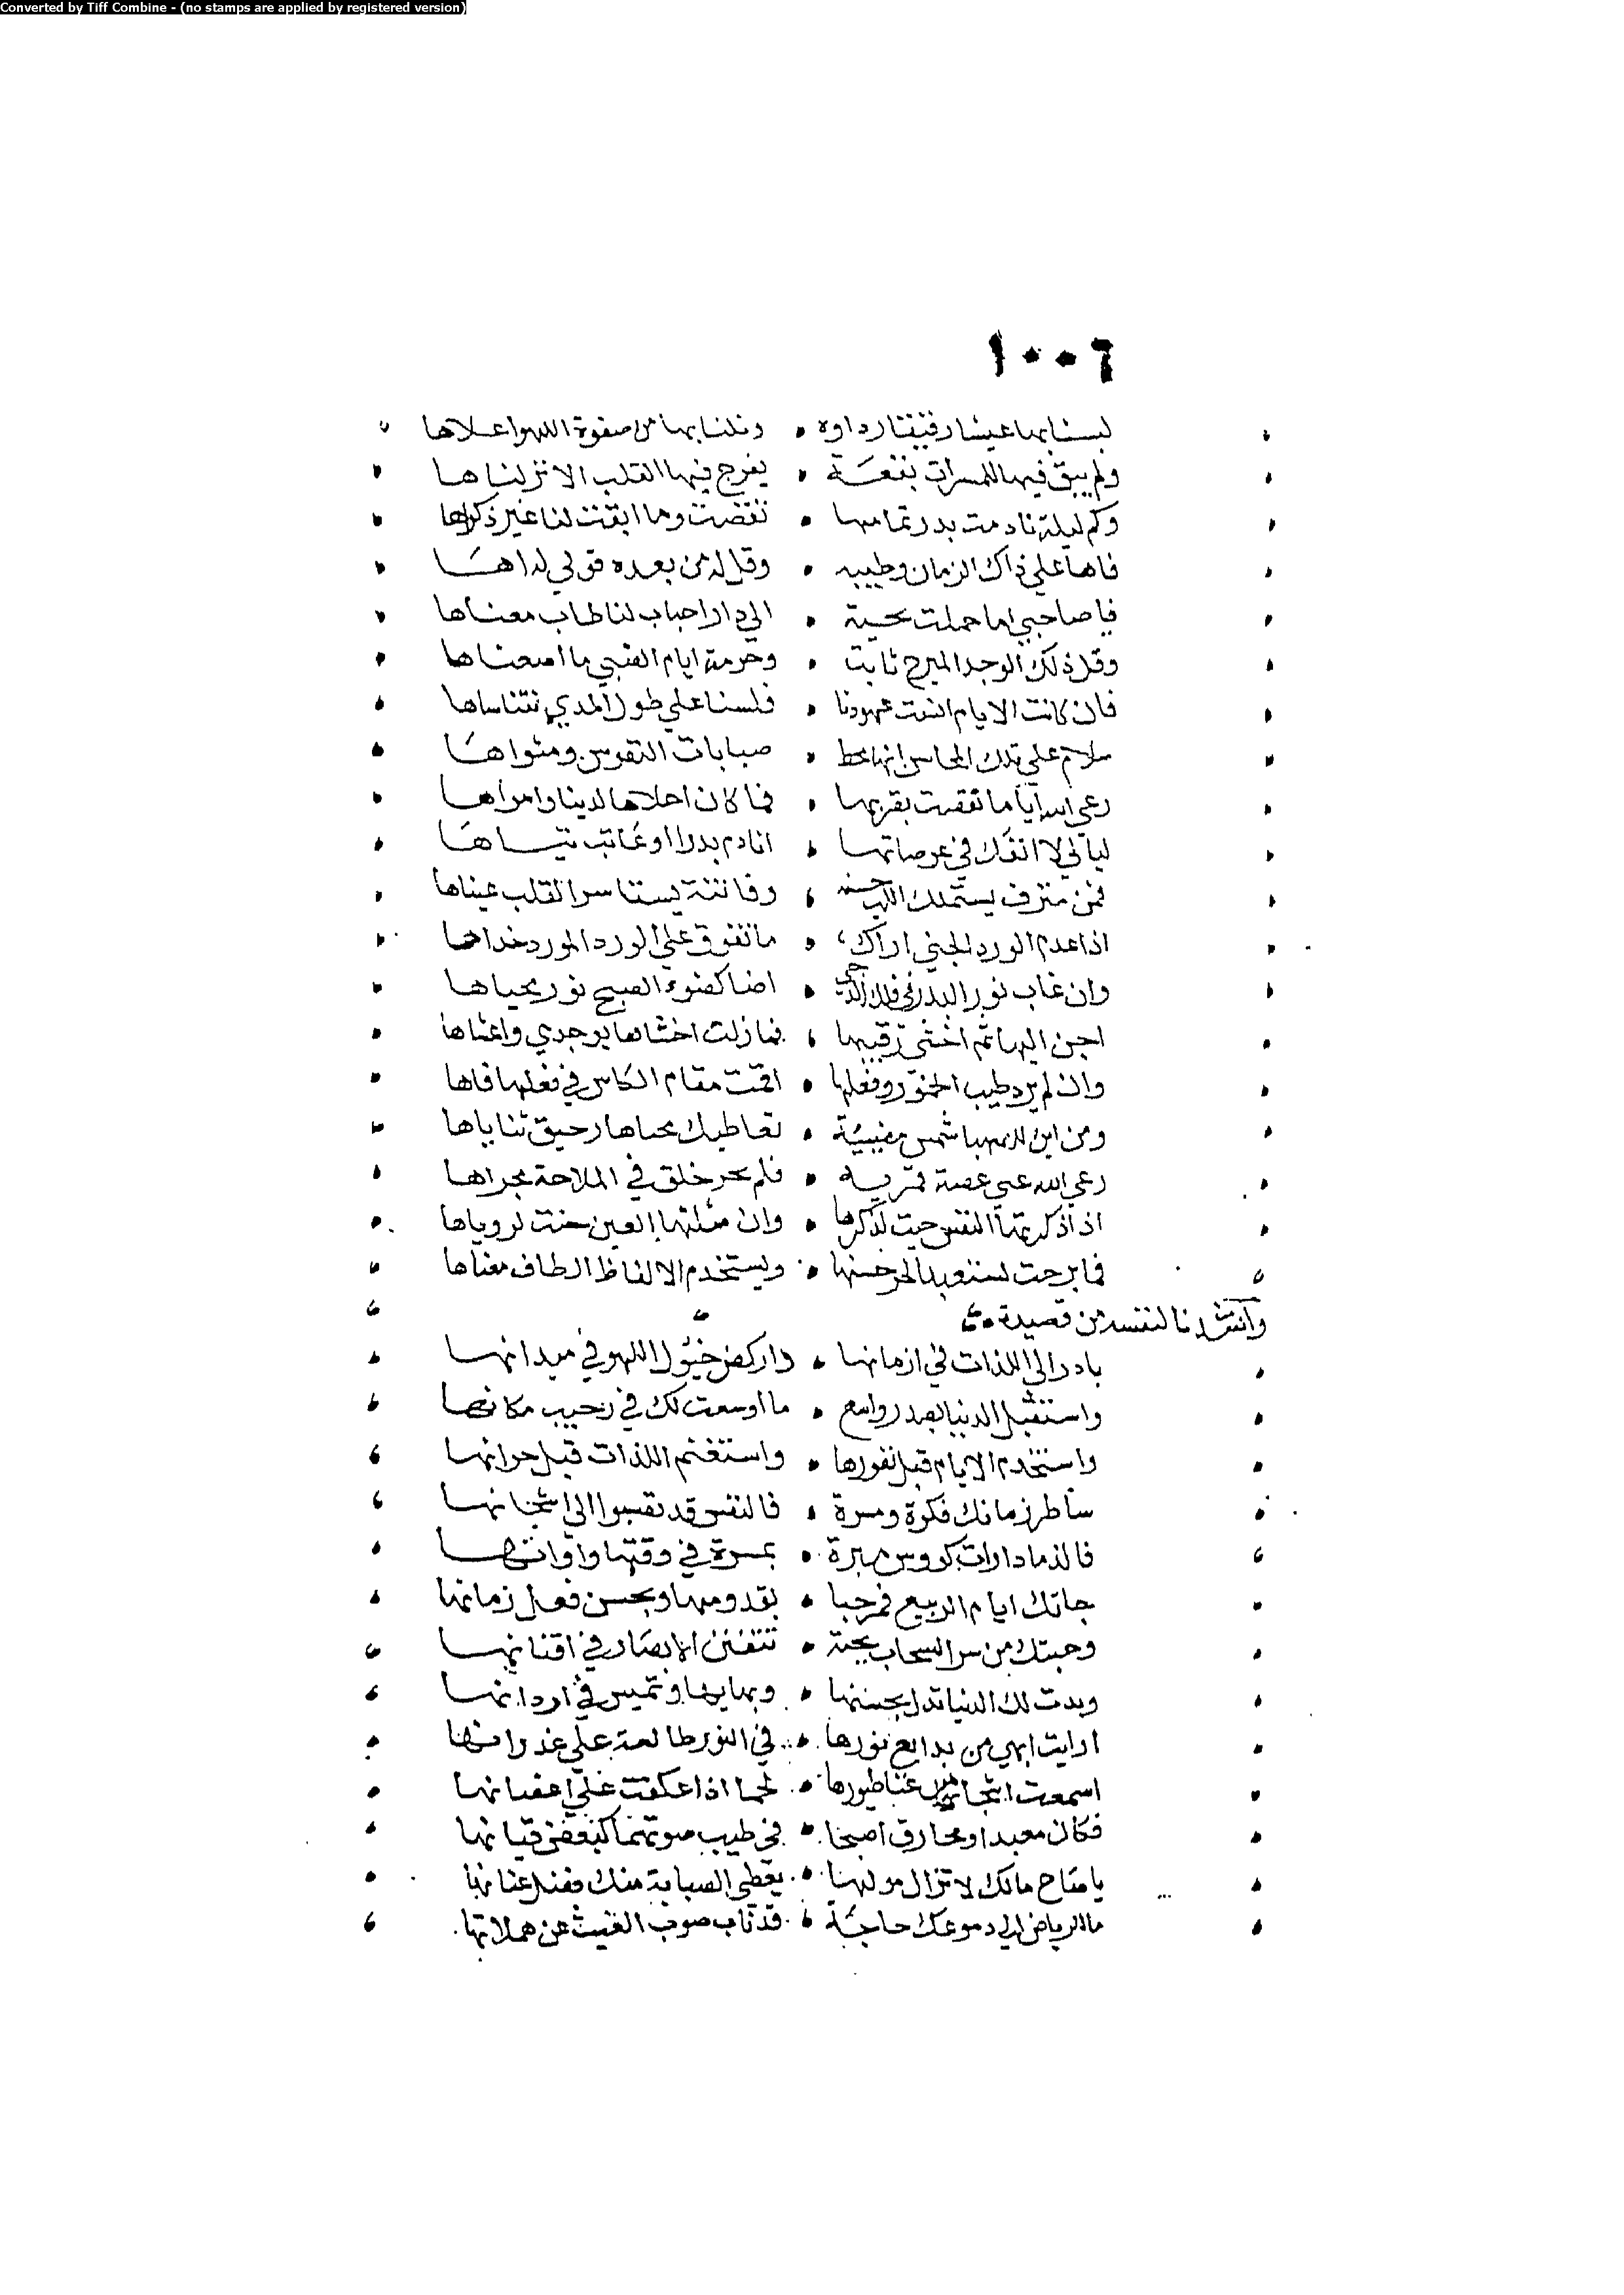 Converted by Tiff Combine - (no stamps are applied by registered version)
١٠٠٦
لبسنا بها عيشا رقيقا رداوه • ونلنا بها من صفوة اللهو اعلاها
ولم يبق فيها للمسرات بقعة • يفرج فيها القلب الا نزلناها
وكم ليلة نادمت بدر تمامها • تقضت وما ابقت لنا غير ذكراها
فاها علي ذاك الزمان وطيبه • وقل له من بعده قولي له اها
فيا صاحبي اما حملت تحية • الي دار احباب لنا طاب معناها
وقل ذلك الوجد المبرح ثابت • وحرمة ايام الصبي ما اضعناها
فان كانت الايام انست عهودنا • فلسنا علي طول المدي نتناساها
سلام علي تلك المحاسن انها محط • صبابات النفوس ومثواها
رعي الله اياما تقضت بقربها • فما كان احلاها لدينا وامراها
ليالي لا انفك في عرصاتها • انادم بدرا او اعاتب تياها
فمن مترف يستملك اللب حسنه • وفاتنة يستاسر القلب عيناها
اذا عدم الورد الجني اراك • ما تفوق علي الورد المورد خداها
وان غاب نور البدر في فلك الدجي • اضا كضوء الصبح نور محياها
احن اليها ثم اخشي رقيبها • فما زلت اخشاها بوجدي واغشاها
وان لم يرد طيب الخمور وفعلها • اقمت مقام الكاس في فعلها فاها
ومن اين للصهبا شمس مضيئة • تعاطيك محياها رحيق ثناياها
رعي الله عني غصة قمرية • فلم يجر خلق في الملاحة مجراها
اذا ذكرتها النفس حنت لذكرها • وان مثلتها العين حنت لروياها
فما برحت تستعبد الحر حسنها • ويستخدم الالفاظ الطاف معناها
وانشدنا لنفسه من قصيدة
بادر الى اللذات في ازمانها • واركض خيول اللهو في ميدانها
واستقبل الدنيا بصدر واسع • ما اوسعت لك في رحيب مكانها
واستخدم الايام قبل نفورها • واستغنم اللذات قبل حرانها
ساطر زمانك فكرة ومسرة • فالنفس قد تصبوا الى اشجانها
فالذ ما دارات كووس مبرة • بمسرة في وقتها واوانها
جاتك ايام الربيع فمرحبا • بقدومها وبحسن فعل زمانها
وحبتك من سر السحاب بجنة • تتفنن الابصار في افنانها
وبدت لك الدنيا تدل بحسنها • وبهايها وتميس في اردانها
ارايت ابهي من بدايع نورها • في النور طالعة علي غدرانها
اسمعت اشجا من غنا طيورها • لحما اذا عكفت علي اغصانها
فكان معبد او مخارق اصبحا • في طيب صوتهما كبعض قيانها
يا صاح مالك لا تزال مولها • يعطي الصبابة منك فضل عنانها
ما للرياض الي دموعك حاجة • قد ناب صوب الغيث عن هملاتها